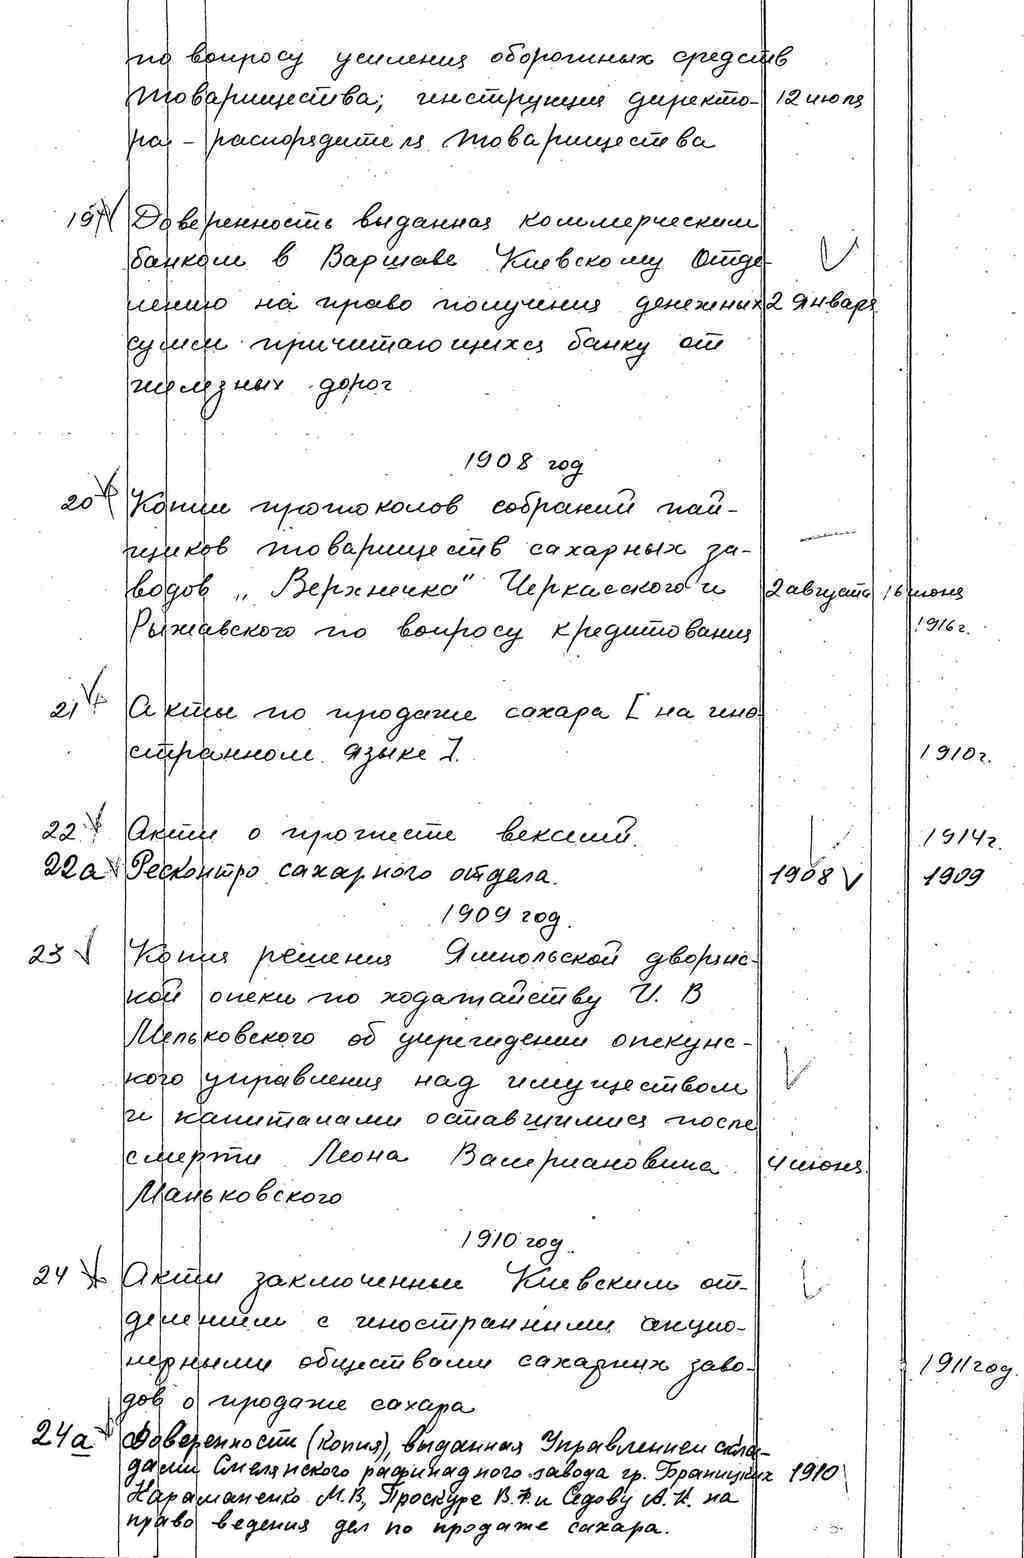 по вопросу усиления оборотных средств
товарищества; инструкция директо- 12 июля
ра - распорядителя товарищества
19 Доверенность выданная коммерческим
банком в Варшаве Киевскому Отде-
лению на право получения денежных 2 января
сумм причитающихся банку от
железных дорог
1908 год
20 Копии протоколов собраний пай-
щиков товариществ сахарных за-
водов „Верхнячка" Черкасского и 2 августа 16 июня
Рыжавского по вопросу кредитования 1916г.
21 Акты по продаже сахара [на ино-
странном языке]. 1910г.
22 Акти о протесте векселей. 1914г.
22а Рескантро сахарного отдела. 1908 1909
1909 год.
23 Копия решения Ямпольской дворянс-
кой опеки по ходатайству И. В
Маньковского об учреждении опекунс-
кого управления над имуществом
и капиталами оставшимися после
смерти Леона Валериановича 4 июня.
Маньковского
1910 год.
24 Акти заключенные Киевским от-
делением с иностранними акцио-
нерными обществами сахарних заво- 1911 год.
дов о продаже сахара
24а Доверенности (копия), выданная Управлением скла-
дами Смелянского рафинадного завода гр. Браницких 1910
Караманенко М.В, Проскуре В.Ф. и Седову А.К. на
право ведения дел по продаже сахара.